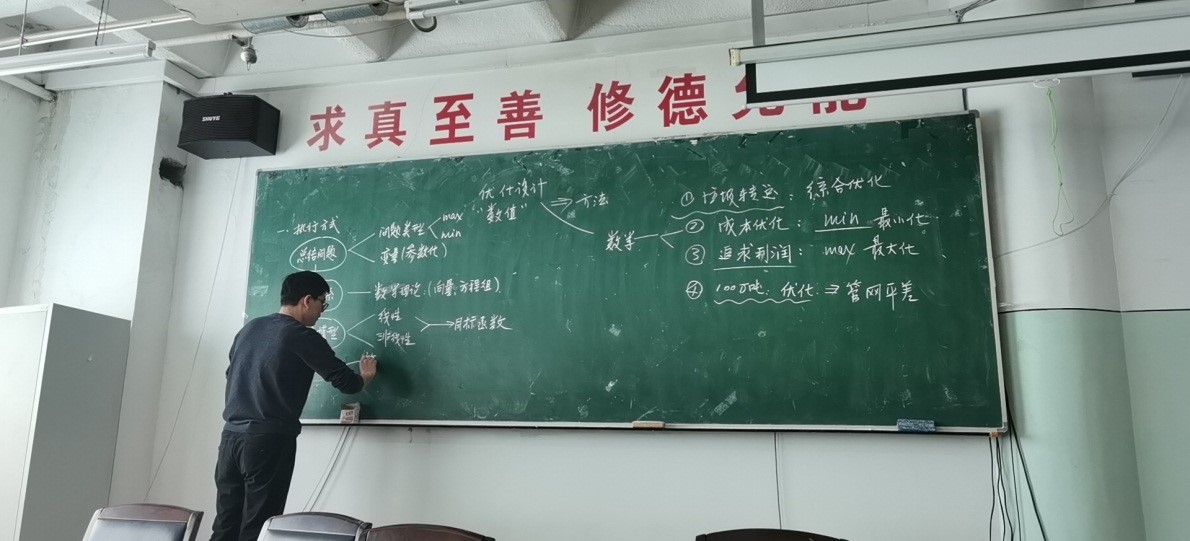 SHUYE
求真至善 修德
优化设计
"数值" ⇒ 方法
一. 执行方式
总结问题
问题类型 max
min
变量(参数化)
数学理论 (向量、方程组)
线性
非线性
→目标函数
数学
① 垃圾转运: 综合优化
② 成本优化: min 最小化
③ 追求利润: max 最大化
④ 100万吨. 优化 ⇒ 管网平差